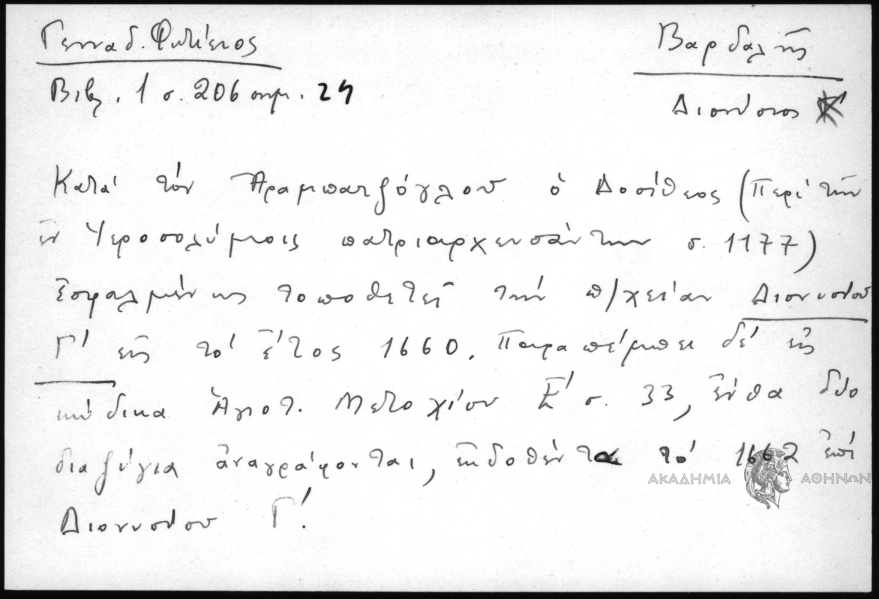 Γενναδ. Φυτίειος Βαρδαλῆς
Βιβλ. 1 σ. 206 σημ. 24 Διονύσιος
Κατά τόν Ἀραμπατζόγλου ὁ Δοσίθεος (Περί τῶν
ἐν Ἱεροσολύμοις πατριαρχευσάντων σ. 1177)
ἐσφαλμένως τοποθετεῖ τήν π/χείαν Διονυσίου
Γ' εἰς τό ἔτος 1660. Παραπέμπει δέ εἰς
κώδικα Ἁγιοτ. Μετοχίου Ε' σ. 33, ἔνθα δύο
διαζύγια ἀναγράφονται, ἐκδοθέντα τό 1662 ἐπί
Διονυσίου Γ'.
ΑΚΑΔΗΜΙΑ ΑΘΗΝΩΝ